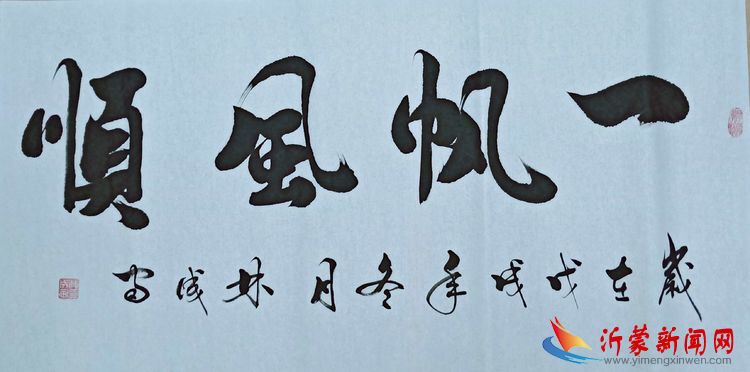 一帆風順
歲在戊戌年冬月林成
沂蒙新闻网
www.yimengxinwen.com